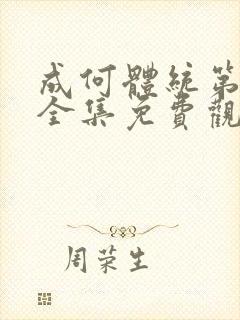 成何體統第
全集免費觀
周荣生